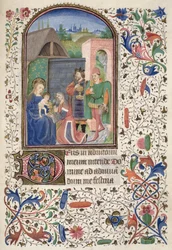 Deus in adiutoriū
meum intende Do
mine ad adiuuan
dum me festina